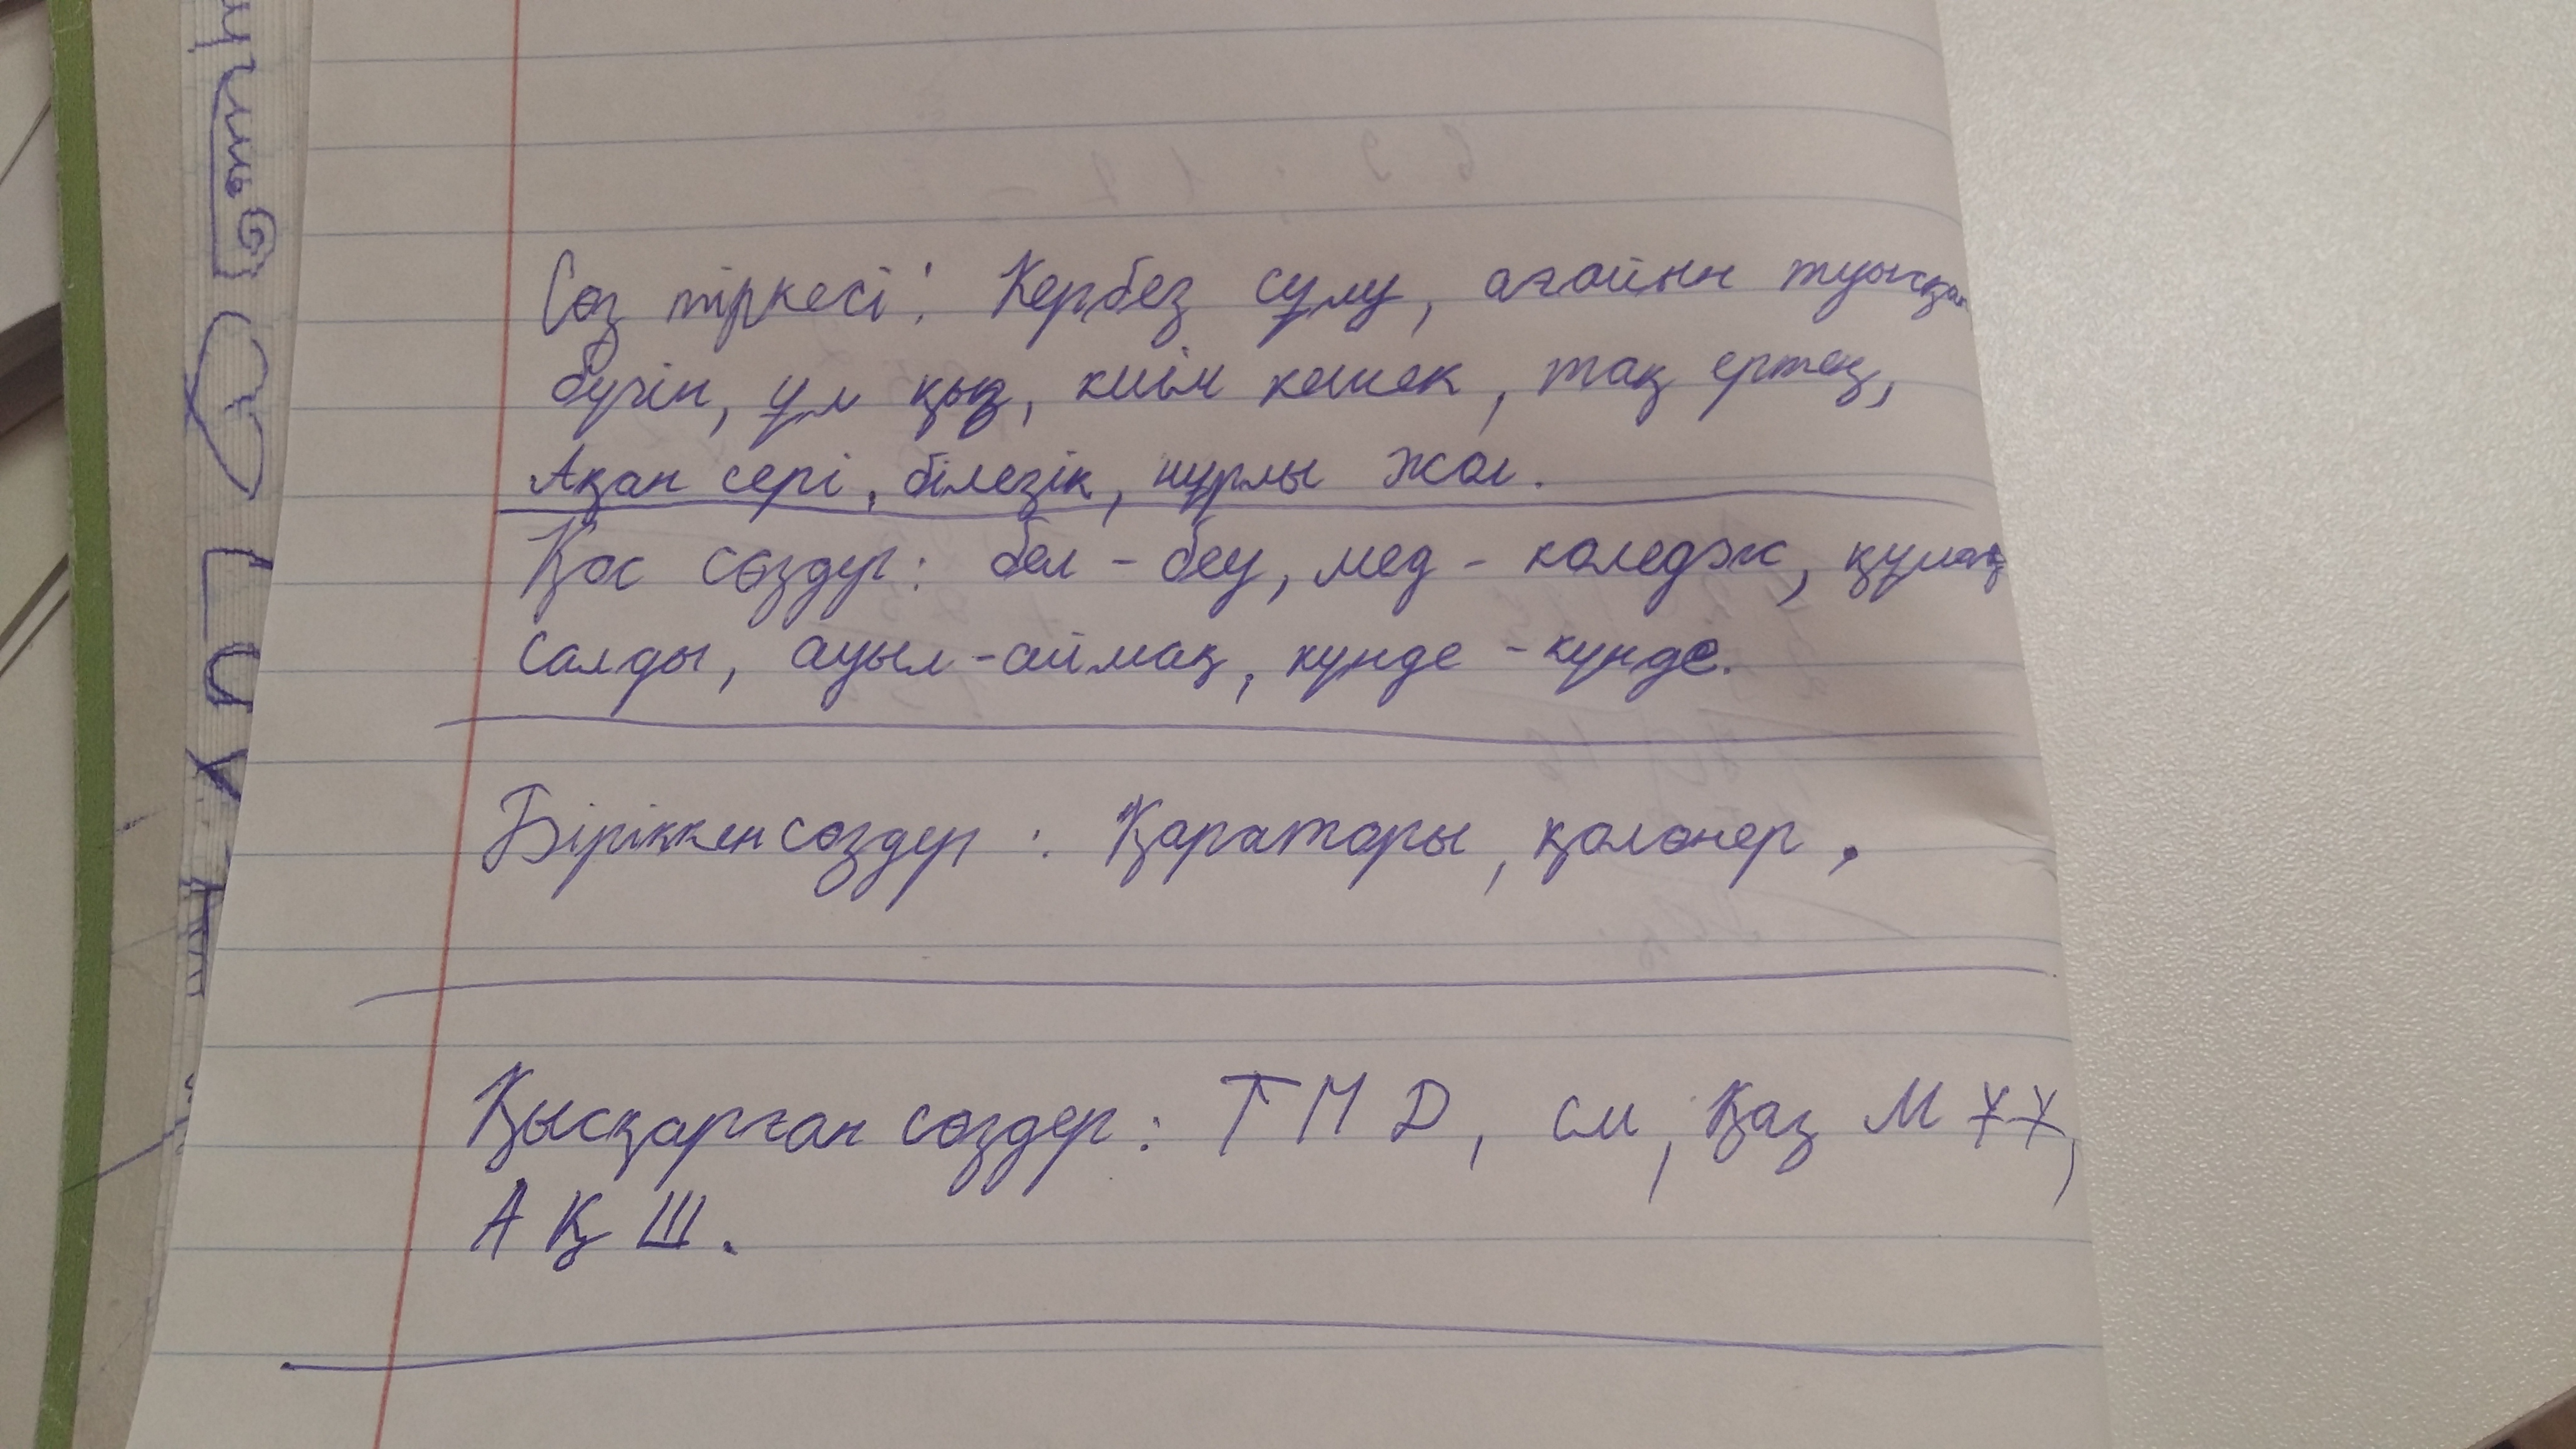 Сөз тіркесі: Кербез сұлу, ағайын туысқан
бүгін, ұл қыз, киім кешек, таң ертең,
Ақан сері, білезік, нұрлы жол.
Қос сөздер: бел - беу, мед - коледж, құлақ
салды, ауыл - аймақ, күнде - күнде.
Біріккен сөздер: Қараторы, қолөнер,
Қысқарған сөздер: ТМД, см, Қаз М ҰУ,
А Қ Ш.
LUV